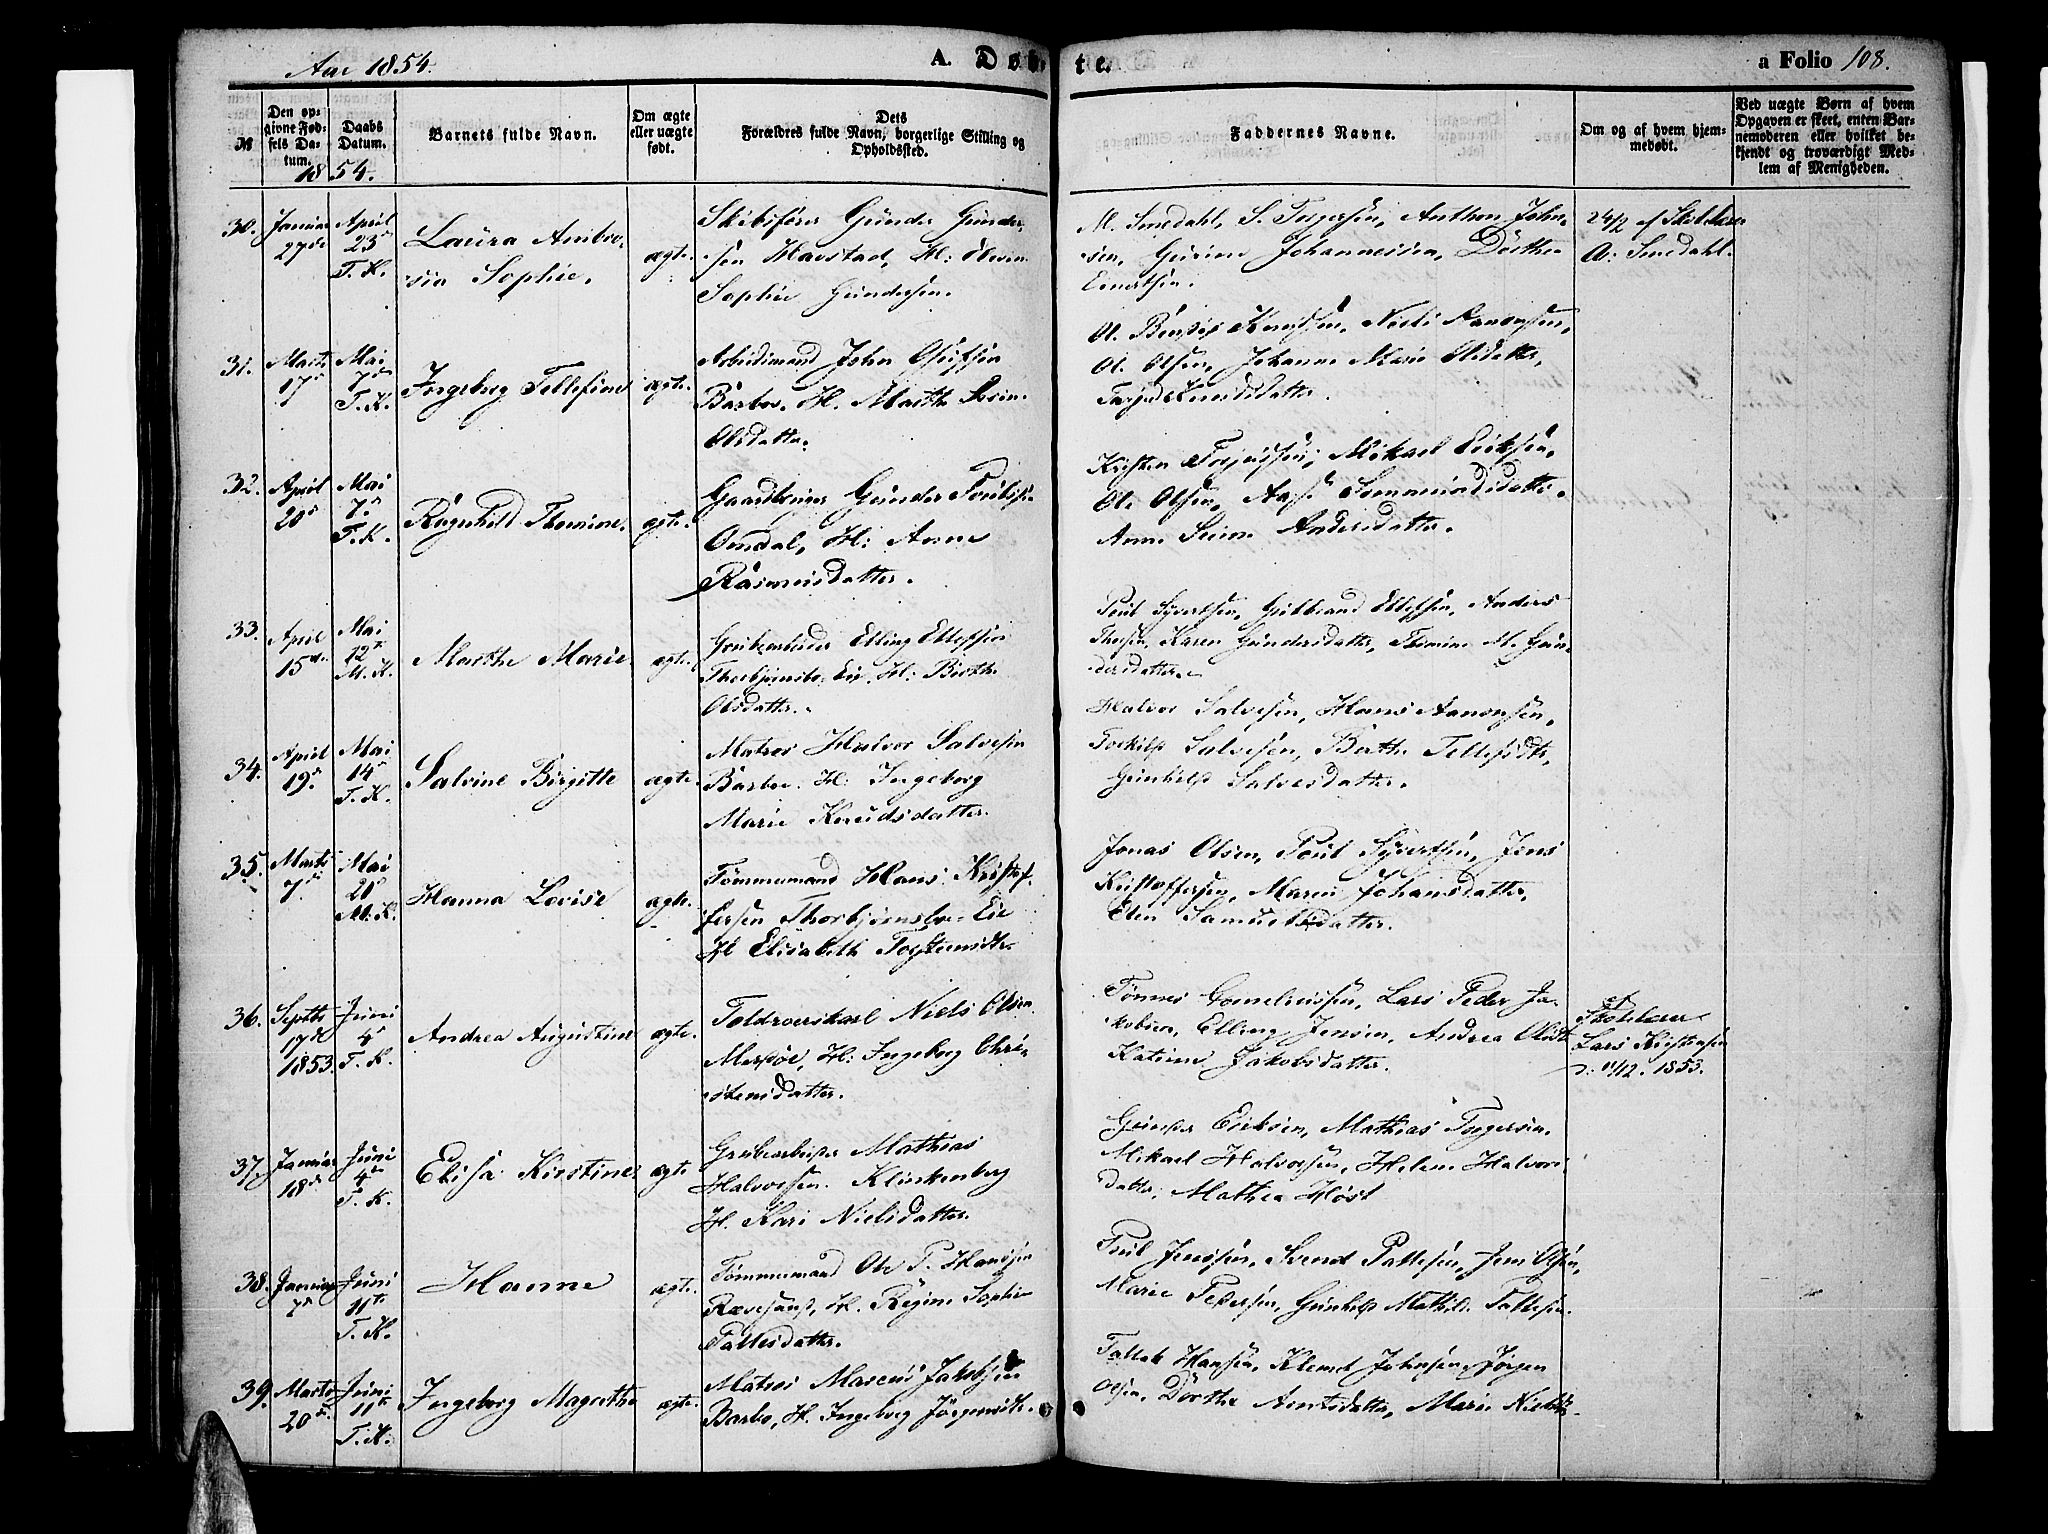 Aar 1854.
A. Døbte.
a Folio 108.
№
Den op-
givne Fød-
sels Da-
tum.
Daabs
Datum.
Barnets fulde Navn.
Om ægte
eller uægte
født.
Dets
Forældres fulde Navn, borgerlige Stilling og
Opholdssted.
Faddernes Navne.
Om og af hvem hjem-
medøbt.
Ved uægte Børn af hvem
Opgaven er skeet, enten Bar-
nemoderen eller hvilket be-
kjendt og troværdigt Med-
lem af Menigheden.
1854.
30.
Januar
27de
April
23de
T. K.
Laura Ambro-
sia Sophie.
ægte.
Skibsfører Gunder Gunder-
sen Havstad, H:
Sophie Gundersen.
M. Smedahl, S. Torgersen, Anthon John-
sen, Gurine Johannesen, Dorthe
Einertsen.
24/2 af Skolelærer
A. Smedahl.
31.
Marts
17de
Mai
7de
T. K.
Ingeborg Tellefine
ægte.
Arbeidsmand John
Barbo. H. Marthe
Olsdatter.
Knudsen, Niels Aanonsen,
Ol. Olsen, Johanne Marie
Knudsdatter.
32.
April
20de
Mai
7de
T. K.
Ragnhild Thomine.
ægte.
Gaardbruger Gunder
Omdal, H: Anne
Rasmusdatter.
Kristen Torjussen, Mikael Eriksen,
Ole Olsen,
Anne Andersdatter.
33.
April
15de
Mai
12te
M. K.
Marthe Marie
ægte.
Grubearbeider Elling Ellefsen
Thorbjørnsbo Eie. H: Birthe
Olsdatter.
Poul Syvertsen, Gulbrand Ellefsen, Anders
Karen Gundersdatter, Thomine M. Gun-
dersdatter.
34.
April
19de
Mai
14de
T. K.
Salvine Birgitte
ægte.
Matros Halvor Salvesen
Barbo. H: Ingeborg
Marie Knudsdatter.
Halvor Salvesen, Hans Aanonsen,
Torkild Salvesen, Berthe Tellefsdtr,
Gunhild Salvesdatter.
35.
Marts
7de
Mai
21de
M. K.
Hanna Lovise
ægte.
Tømmermand Hans Kristof-
fersen Thorbjørnsbo Eie
H Elisabeth Torstensdtr
Jonas Olsen, Poul Syvertsen, Jens
Kristoffersen, Maren Johansdatter,
Elen Samuelsdatter.
36.
Septbr
17de
1853.
Juni
4de
T. K.
Andrea Augustine
ægte.
Toldroerskarl Niels Olsen
Merdøe, H: Ingeborg Chri-
stensdatter.
Tønnes Corneliussen, Lars Peder Ja-
kobsen, Elling Jensen, Andrea Olsdtr
Katrine Jakobsdatter.
af
Skolelærer
Lars Kristensen
d: 11/12. 1853.
37.
Januar
18de
Juni
4de
T. K.
Elisa Kirstine
ægte
Grubearbeider Mathias
Halvorsen. Klinkenberg
H. Kari Nielsdatter.
Eriksen, Mathias Torgersen,
Mikael Halvorsen, Helene Halvors-
datter, Mathea Høst
38.
Januar
7de
Juni
11te
T. K.
Hanne
ægte.
Tømmermand Ole P. Hansen
Rævesand, H. Regine Sophie
Pallesdatter.
Poul Jenssen, Svend Pallesen, Jens Olsen,
Marie Pedersen, Gunhild Mathilde Pallesen.
39.
Marts
20de
Juni
11te
T. K.
Ingeborg Magrethe
ægte.
Matros Marcus Jakobsen
Barbo, H. Ingeborg Jørgensdtr.
Tallak Hansen, Klemet Johnsen, Jørgen
Olsen, Dorthe Arntsdatter, Marie Nielsdtr.